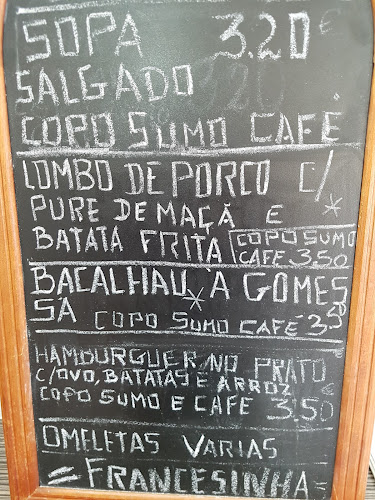 SOPA 3.20€
SALGADO
COPO SUMO CAFE
LOMBO DE PORCO C/
PURE DE MAÇÃ E *
BATATA FRITA COPO SUMO
CAFE 3.50
BACALHAU À GOMES
SA * COPO SUMO CAFÉ 3,50
HAMBURGUER NO PRATO
C/OVO, BATATAS E ARROZ €
COPO SUMO E CAFE 3.50
OMELETAS VARIAS
= FRANCESINHA =